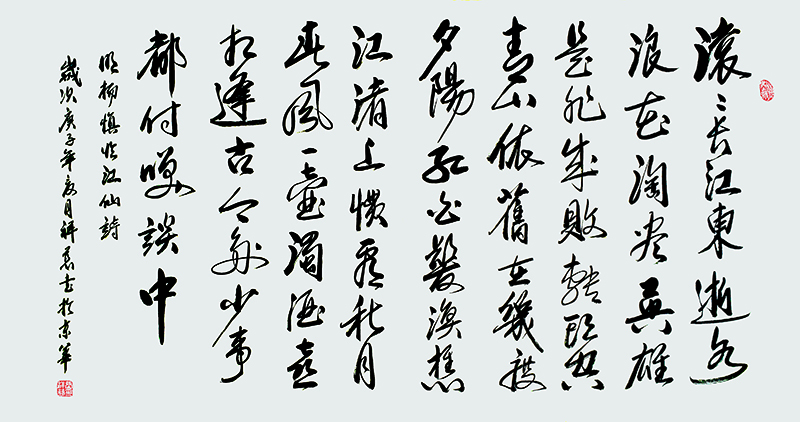 滚〻长江東逝水
浪花淘尽英雄
是非成敗轉頭空
青山依舊在幾度
夕陽紅白髮漁樵
江渚上慣看秋月
春風一壺濁酒喜
相逢古今多少事
都付咲談中
明杨慎临江仙詩
歲次庚子年夏月祥書於京華